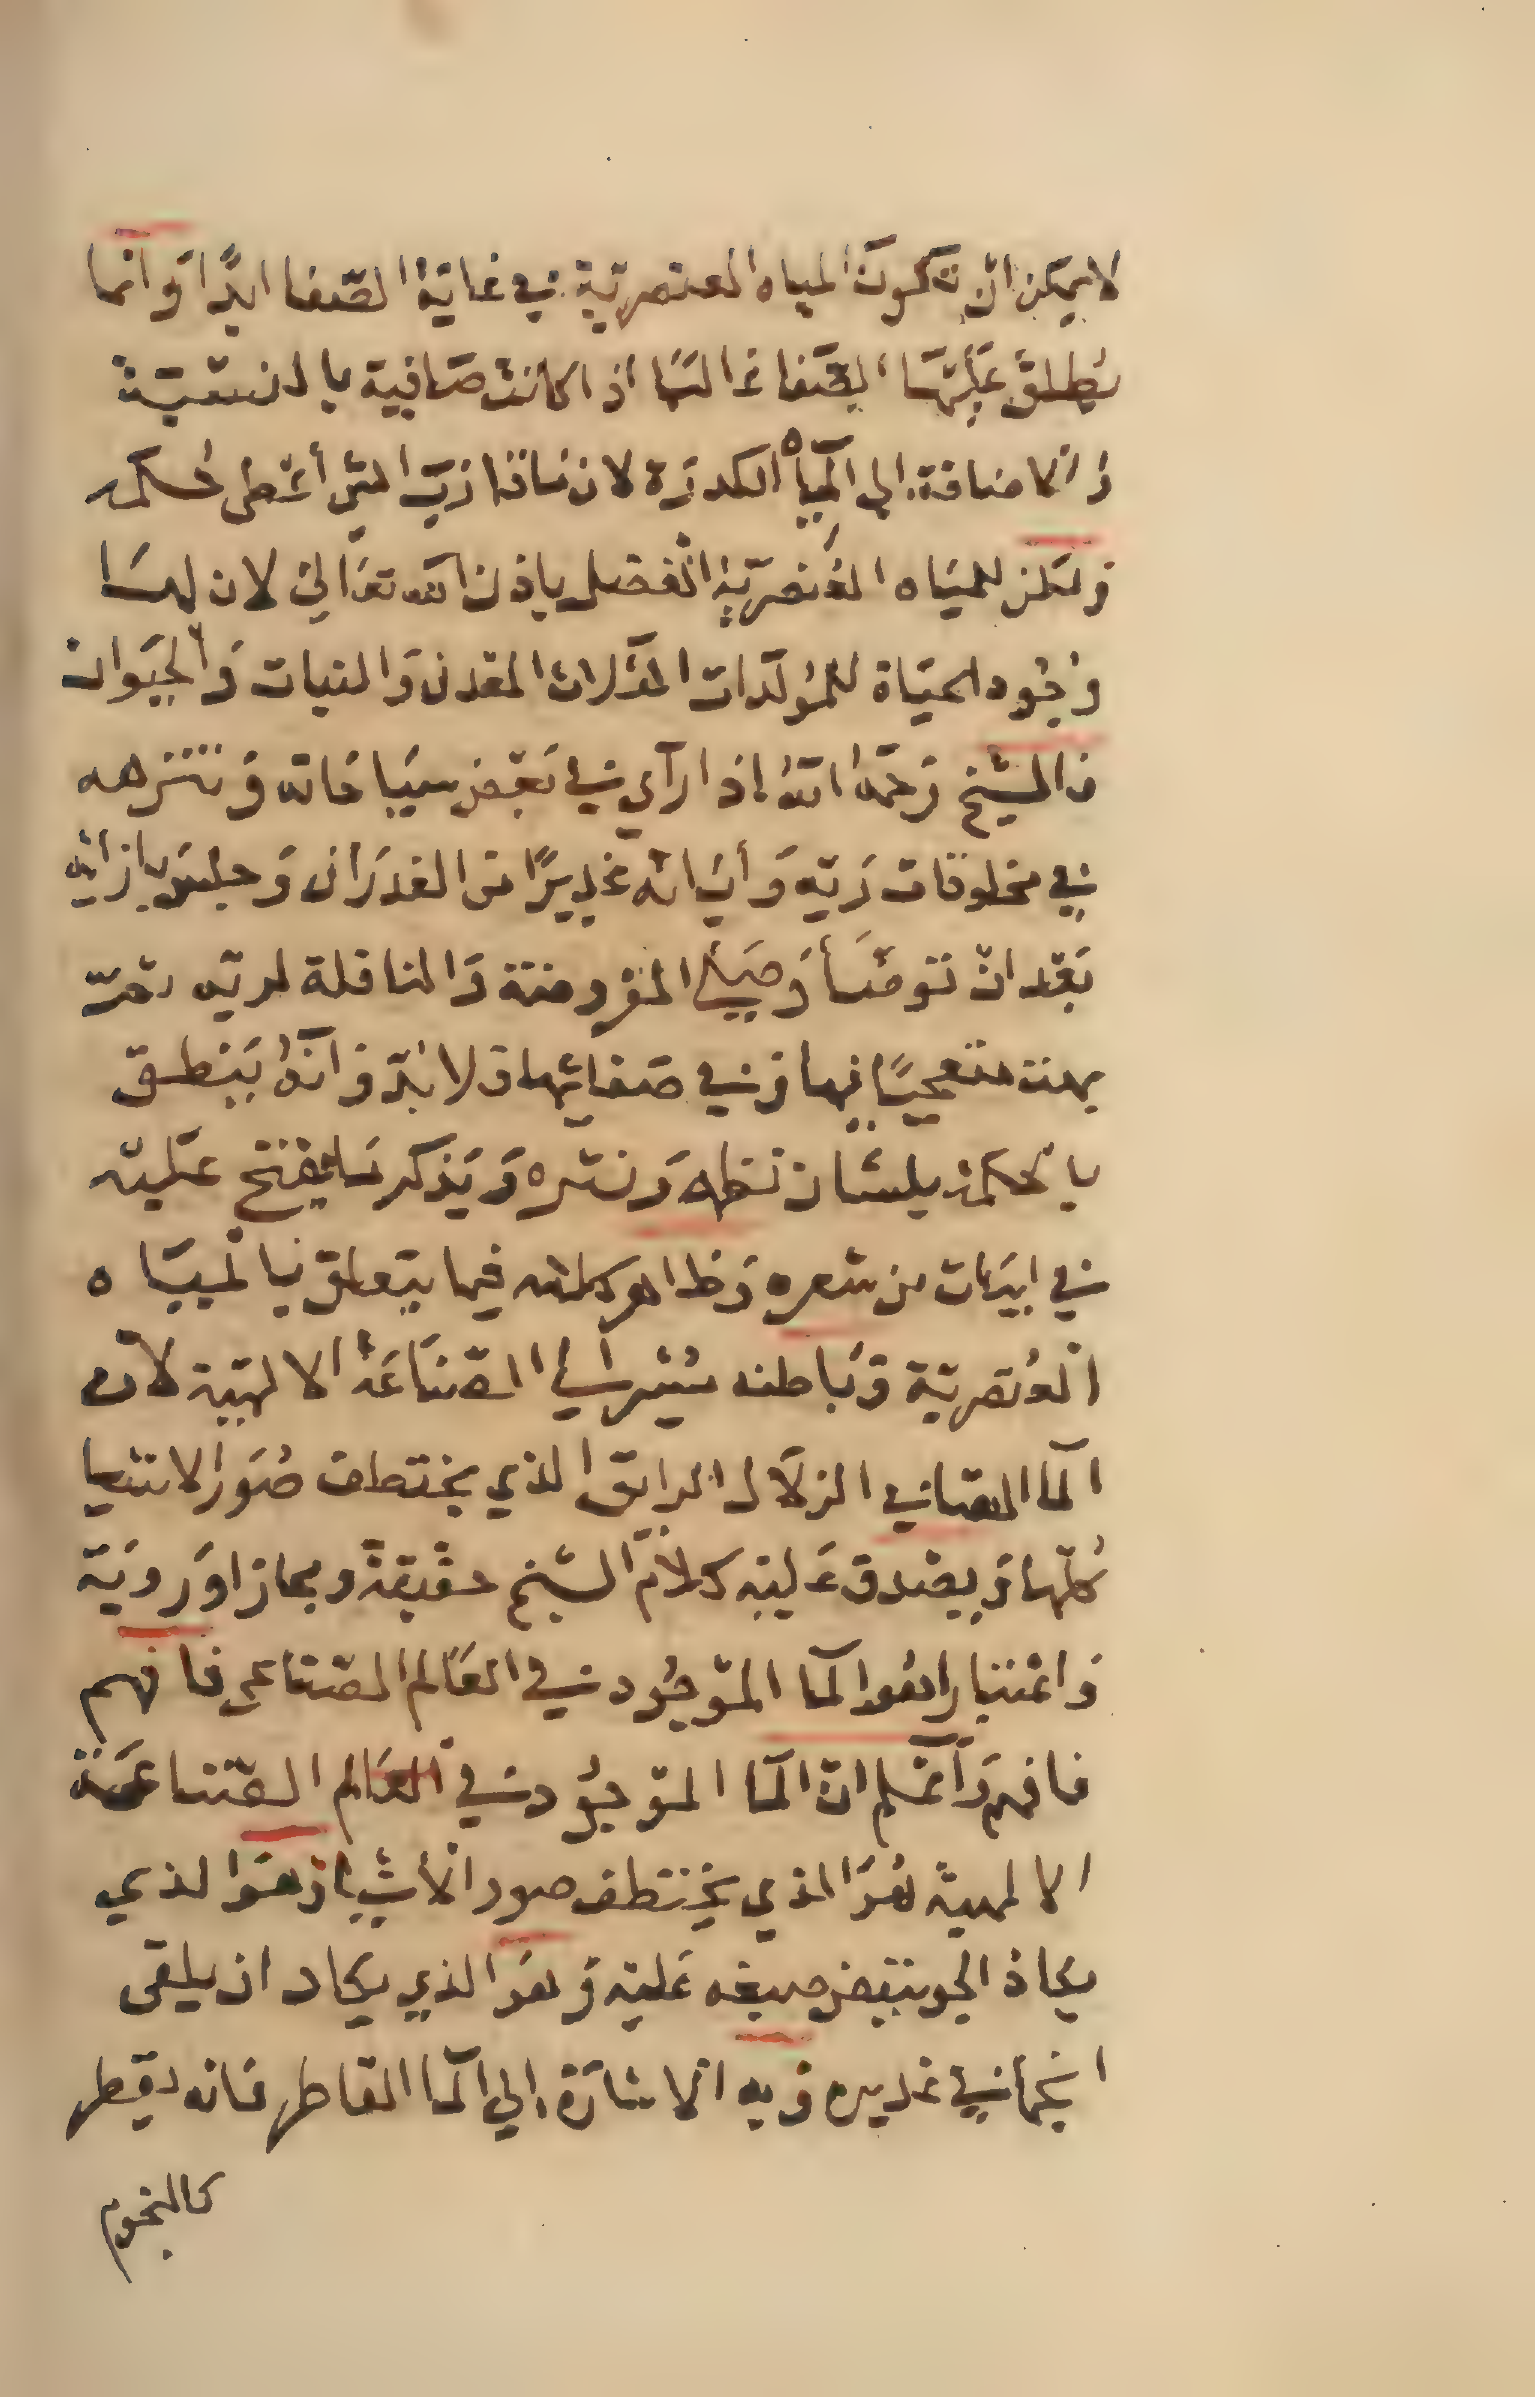 لا يمكن ان تكون المياه العنصرية في غاية الصفا ابدًا وَانما
يُطلق عَليهَا الصّفا غالبًا اذا كانت صَافية بالنسبَة
وَالاضافة الي المياه الكدرَة لان ما قارب الشي أعطى حكمه
وَلكن للميَاه العُنصريّة الفضل باذن الله تعَالي لان لهَا
وُجُود الحيَاة للمُولّدات الثلاث المعدن وَالنبات وَالحيَوان
فالشيخ رَحمَهُ اللهُ اذا رآي في بَعض سيَاحَاته وَتنزهه
في مخلوقات رَبّه وَأيَاته غديرًا من الغدرَان وَجلسَ بازائه
بَعد ان توضأ وَصَلي المفروضة وَالنافلة لربه
متعجبًا فيها وَفي صَفائها وَلا بُدّ وَانهُ يَنطق
بالحكمة بلسَان نظمه وَنثره وَيَذكر مَا يفتح عَليه
في ابيَات من شعره وَظاهر كلامه فيما يتعلق بالميَاه
العُنصريّة وَبَاطنه يُشير إلي الصّنَاعَة الالهيّة لأن
المآ الصافي الزلاَل الرايق الذي يختطف صُوَر الاشيا
كُلّها وَيصدق عَليه كلام الشيخ حقيقةً ومجازا وَرويَة
وَاعتبارا هُوَ المآ الموجُود في العَالم الصّناعي فافهم
فافهم وَأعلم انّ المآ الموجُود في العَالم الصّناعَة
الالهية هُوَ الذي يختطف صور الأشيَا وَهوَ الذي
يكاد الجو ينفض صبغه عَليه وَهوَ الذي يكاد ان يلقى
انجمًا في غديره وَفيه الاشارَة إلي المآ القاطر فَانه يقطر
كالنجوم